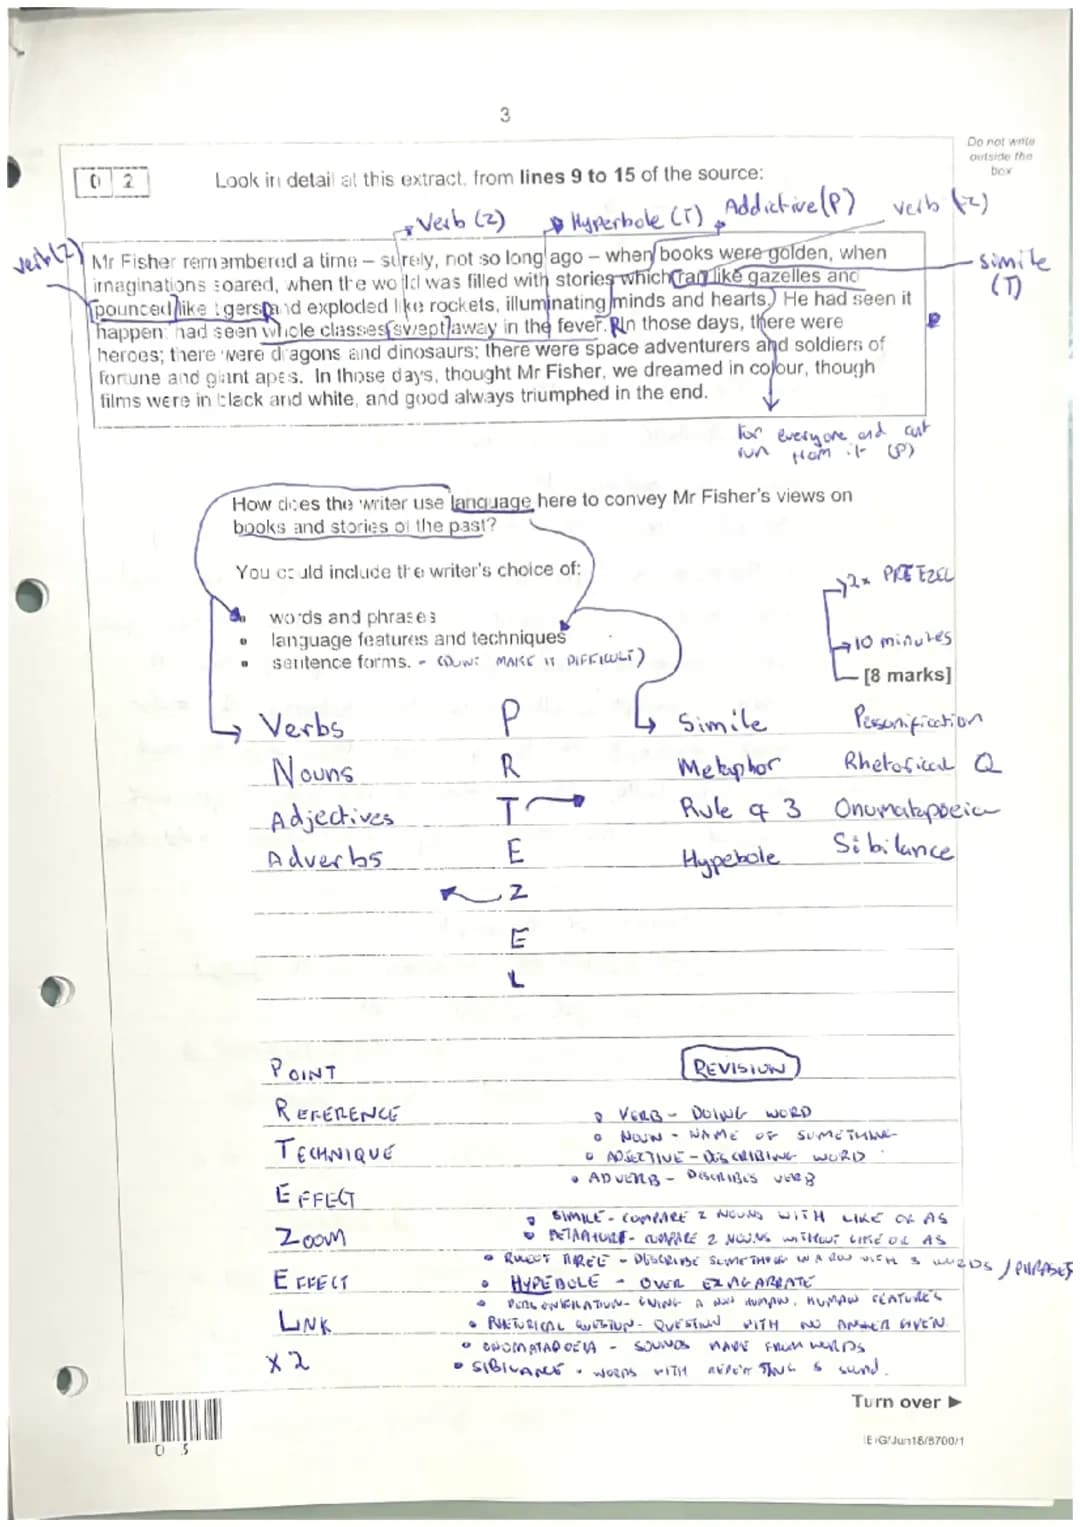 3
Do not write
outside the
box
0 2
Look in detail at this extract, from lines 9 to 15 of the source:
Verb (Z)
Hyperbole (T)
Addictive (P)
verb (Z)
verb (Z)
Mr Fisher remembered a time – surely, not so long ago – when books were golden, when
imaginations soared, when the world was filled with stories which ran like gazelles and
pounced like tigers and exploded like rockets, illuminating minds and hearts. He had seen it
happen: had seen whole classes swept away in the fever. In those days, there were
heroes; there were dragons and dinosaurs; there were space adventurers and soldiers of
fortune and giant apes. In those days, thought Mr Fisher, we dreamed in colour, though
films were in black and white, and good always triumphed in the end.
simile
(T)
R
P
for everyone and can't
run from it (P)
How does the writer use language here to convey Mr Fisher's views on
books and stories of the past?
You could include the writer's choice of:
• words and phrases
• language features and techniques
• sentence forms. - (DON'T MAKE IT DIFFICULT)
2x PRETEZEL
10 minutes
[8 marks]
Verbs P Simile Personification
Nouns R Metaphor Rhetorical Q
Adjectives T Rule of 3 Onomatapoeia
Adverbs E Hypebole Sibilance
Z
E
L
POINT REVISION
REFERENCE • VERB - DOING WORD
• NOUN - NAME OF SOMETHING
TECHNIQUE • ADJECTIVE - DESCRIBING WORD
• ADVERB - DESCRIBES VERB
EFFECT
• SIMILE - COMPARE 2 NOUNS WITH LIKE OR AS
ZOOM • METAPHORE - COMPARE 2 NOUNS WITHOUT LIKE OR AS
• RULE OF THREE - DESCRIBE SOMETHING IN A ROW WITH 3 WORDS / PHRASES
EFFECT • HYPEBOLE - OVER EXAGARRATE
• PERSONIFICATION - GIVING A NON HUMAN, HUMAN FEATURES
LINK • RHETORICAL QUESTION - QUESTION WITH NO ANSWER GIVEN.
• ONOMATAPOEIA - SOUNDS MADE FROM WORDS
x2 • SIBILANCE - WORDS WITH REPEATING S sound.
Turn over ►
0 3
IB/G/Jun18/8700/1